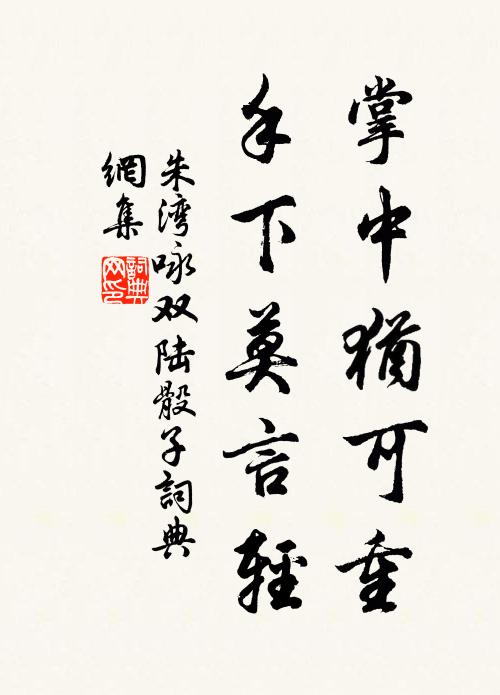 掌中猶可重
手下莫言輕
朱湾咏双陆骰子詞典
網集
詞典
网印